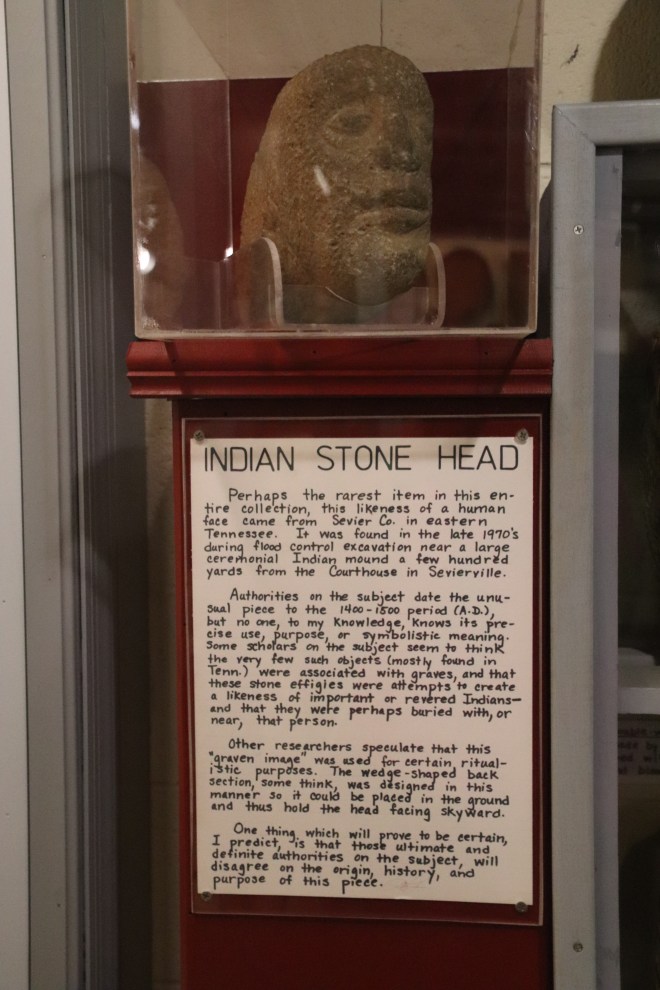 INDIAN STONE HEAD
Perhaps the rarest item in this en-
tire collection, this likeness of a human
face came from Sevier Co. in eastern
Tennessee. It was found in the late 1970's
during flood control excavation near a large
ceremonial Indian mound a few hundred
yards from the Courthouse in Sevierville.
Authorities on the subject date the unu-
sual piece to the 1400-1500 period (A.D.),
but no one, to my knowledge, knows its pre-
cise use, purpose, or symbolistic meaning.
Some scholars on the subject seem to think
the very few such objects (mostly found in
Tenn.) were associated with graves, and that
these stone effigies were attempts to create
a likeness of important or revered Indians—
and that they were perhaps buried with, or
near, that person.
Other researchers speculate that this
"graven image" was used for certain ritual-
istic purposes. The wedge-shaped back
section, some think, was designed in this
manner so it could be placed in the ground
and thus hold the head facing skyward.
One thing which will prove to be certain,
I predict, is that those ultimate and
definite authorities on the subject, will
disagree on the origin, history, and
purpose of this piece.